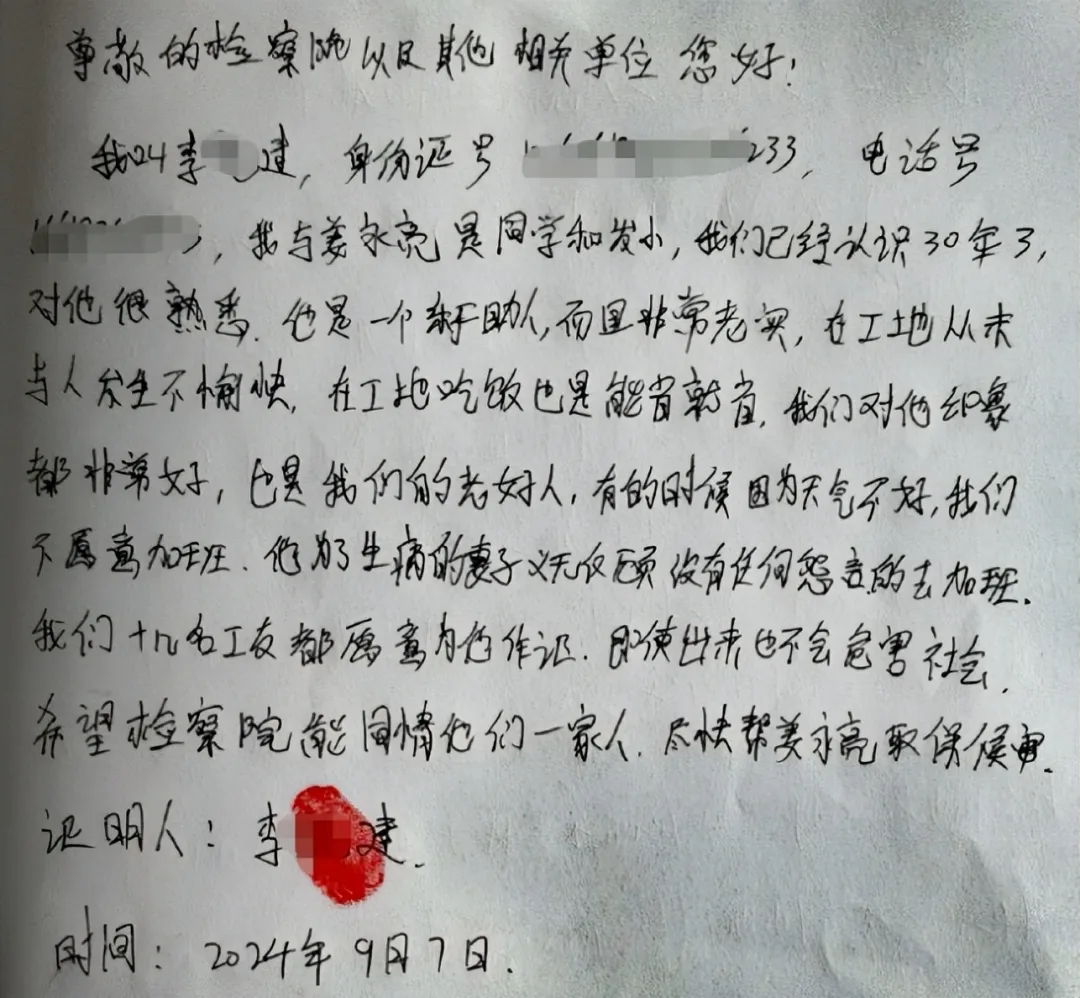 尊敬的检察院以及其他相关单位您好!
我叫李建,身份证号233,电话号
,我与姜永亮是同学和发小,我们已经认识30年了,
对他很熟悉.他是一个乐于助人,而且非常老实,在工地从未
与人发生不愉快.在工地吃饭也是能省就省.我们对他印象
都非常好,也是我们的老好人,有的时候因为天气不好,我们
不愿意加班.他为了生病的妻子义无反顾没有任何怨言的去加班.
我们十几名工友都愿意为他作证.即使出来也不会危害社会.
希望检察院能同情他们一家人.尽快帮姜永亮取保候审.
证明人:李建.
时间:2024年9月7日.